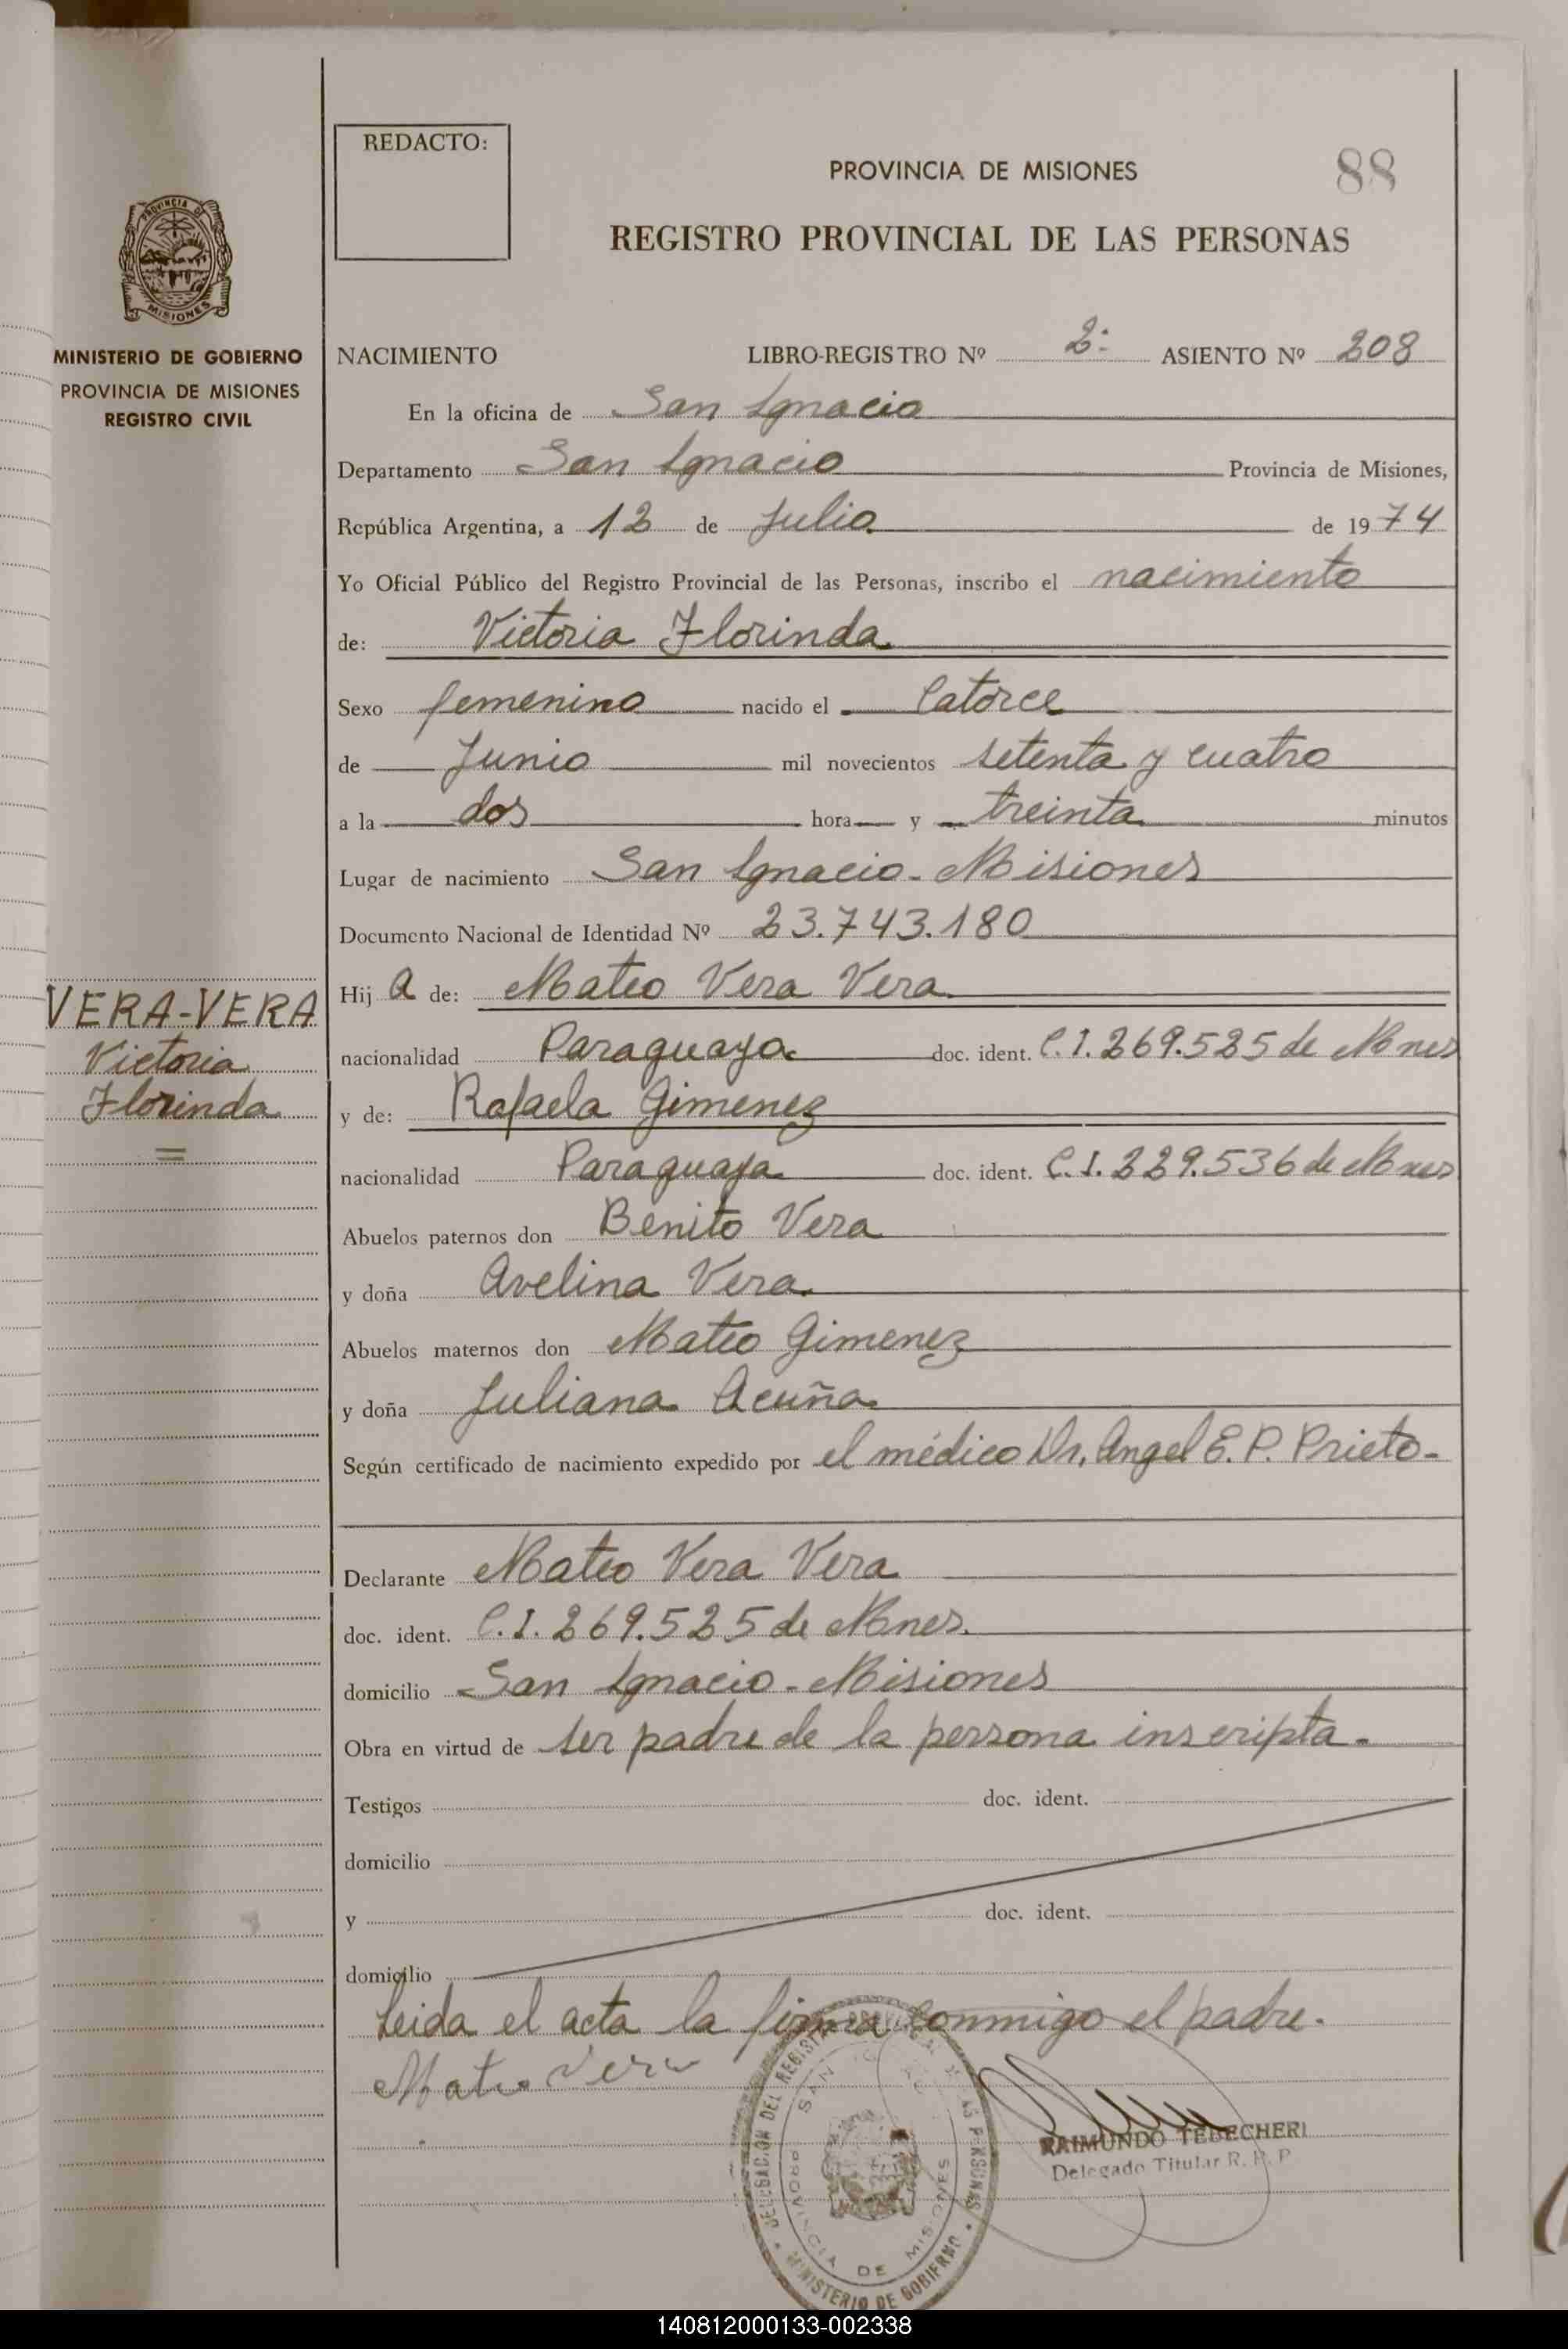 REDACTO:
PROVINCIA DE MISIONES
88
REGISTRO PROVINCIAL DE LAS PERSONAS
PROVINCIA DE
MISIONES
MINISTERIO DE GOBIERNO
PROVINCIA DE MISIONES
REGISTRO CIVIL
NACIMIENTO LIBRO-REGISTRO Nº 2: ASIENTO Nº 208
En la oficina de San Ignacio
Departamento San Ignacio Provincia de Misiones,
República Argentina, a 12 de Julio de 1974
Yo Oficial Público del Registro Provincial de las Personas, inscribo el nacimiento
de: Victoria Florinda
Sexo femenino nacido el Catorce
de Junio mil novecientos setenta y cuatro
a la dos hora y treinta minutos
Lugar de nacimiento San Ignacio - Misiones
Documento Nacional de Identidad Nº 23.743.180
Hij a de: Mateo Vera Vera
nacionalidad Paraguaya doc. ident. C.I. 269.525 de Mnes
y de: Rafaela Gimenez
nacionalidad Paraguaya doc. ident. C.I. 229.536 de Mnes
Abuelos paternos don Benito Vera
y doña Avelina Vera
Abuelos maternos don Mateo Gimenez
y doña Juliana Acuña
Según certificado de nacimiento expedido por el médico Dr. Angel E. P. Prieto-
VERA-VERA
Victoria
Florinda
=
Declarante Mateo Vera Vera
doc. ident. C.I. 269.525 de Mnes.
domicilio San Ignacio - Misiones
Obra en virtud de ser padre de la persona inscripta.
Testigos doc. ident.
domicilio
y doc. ident.
domicilio
Leida el acta la firma conmigo el padre.
Mateo Vera
DELEGACION DEL REGISTRO PROVINCIAL DE LAS PERSONAS
SAN IGNACIO
PROVINCIA DE MISIONES
MINISTERIO DE GOBIERNO
RAIMUNDO TEDECHERI
Delegado Titular R. P. P.
140812000133-002338